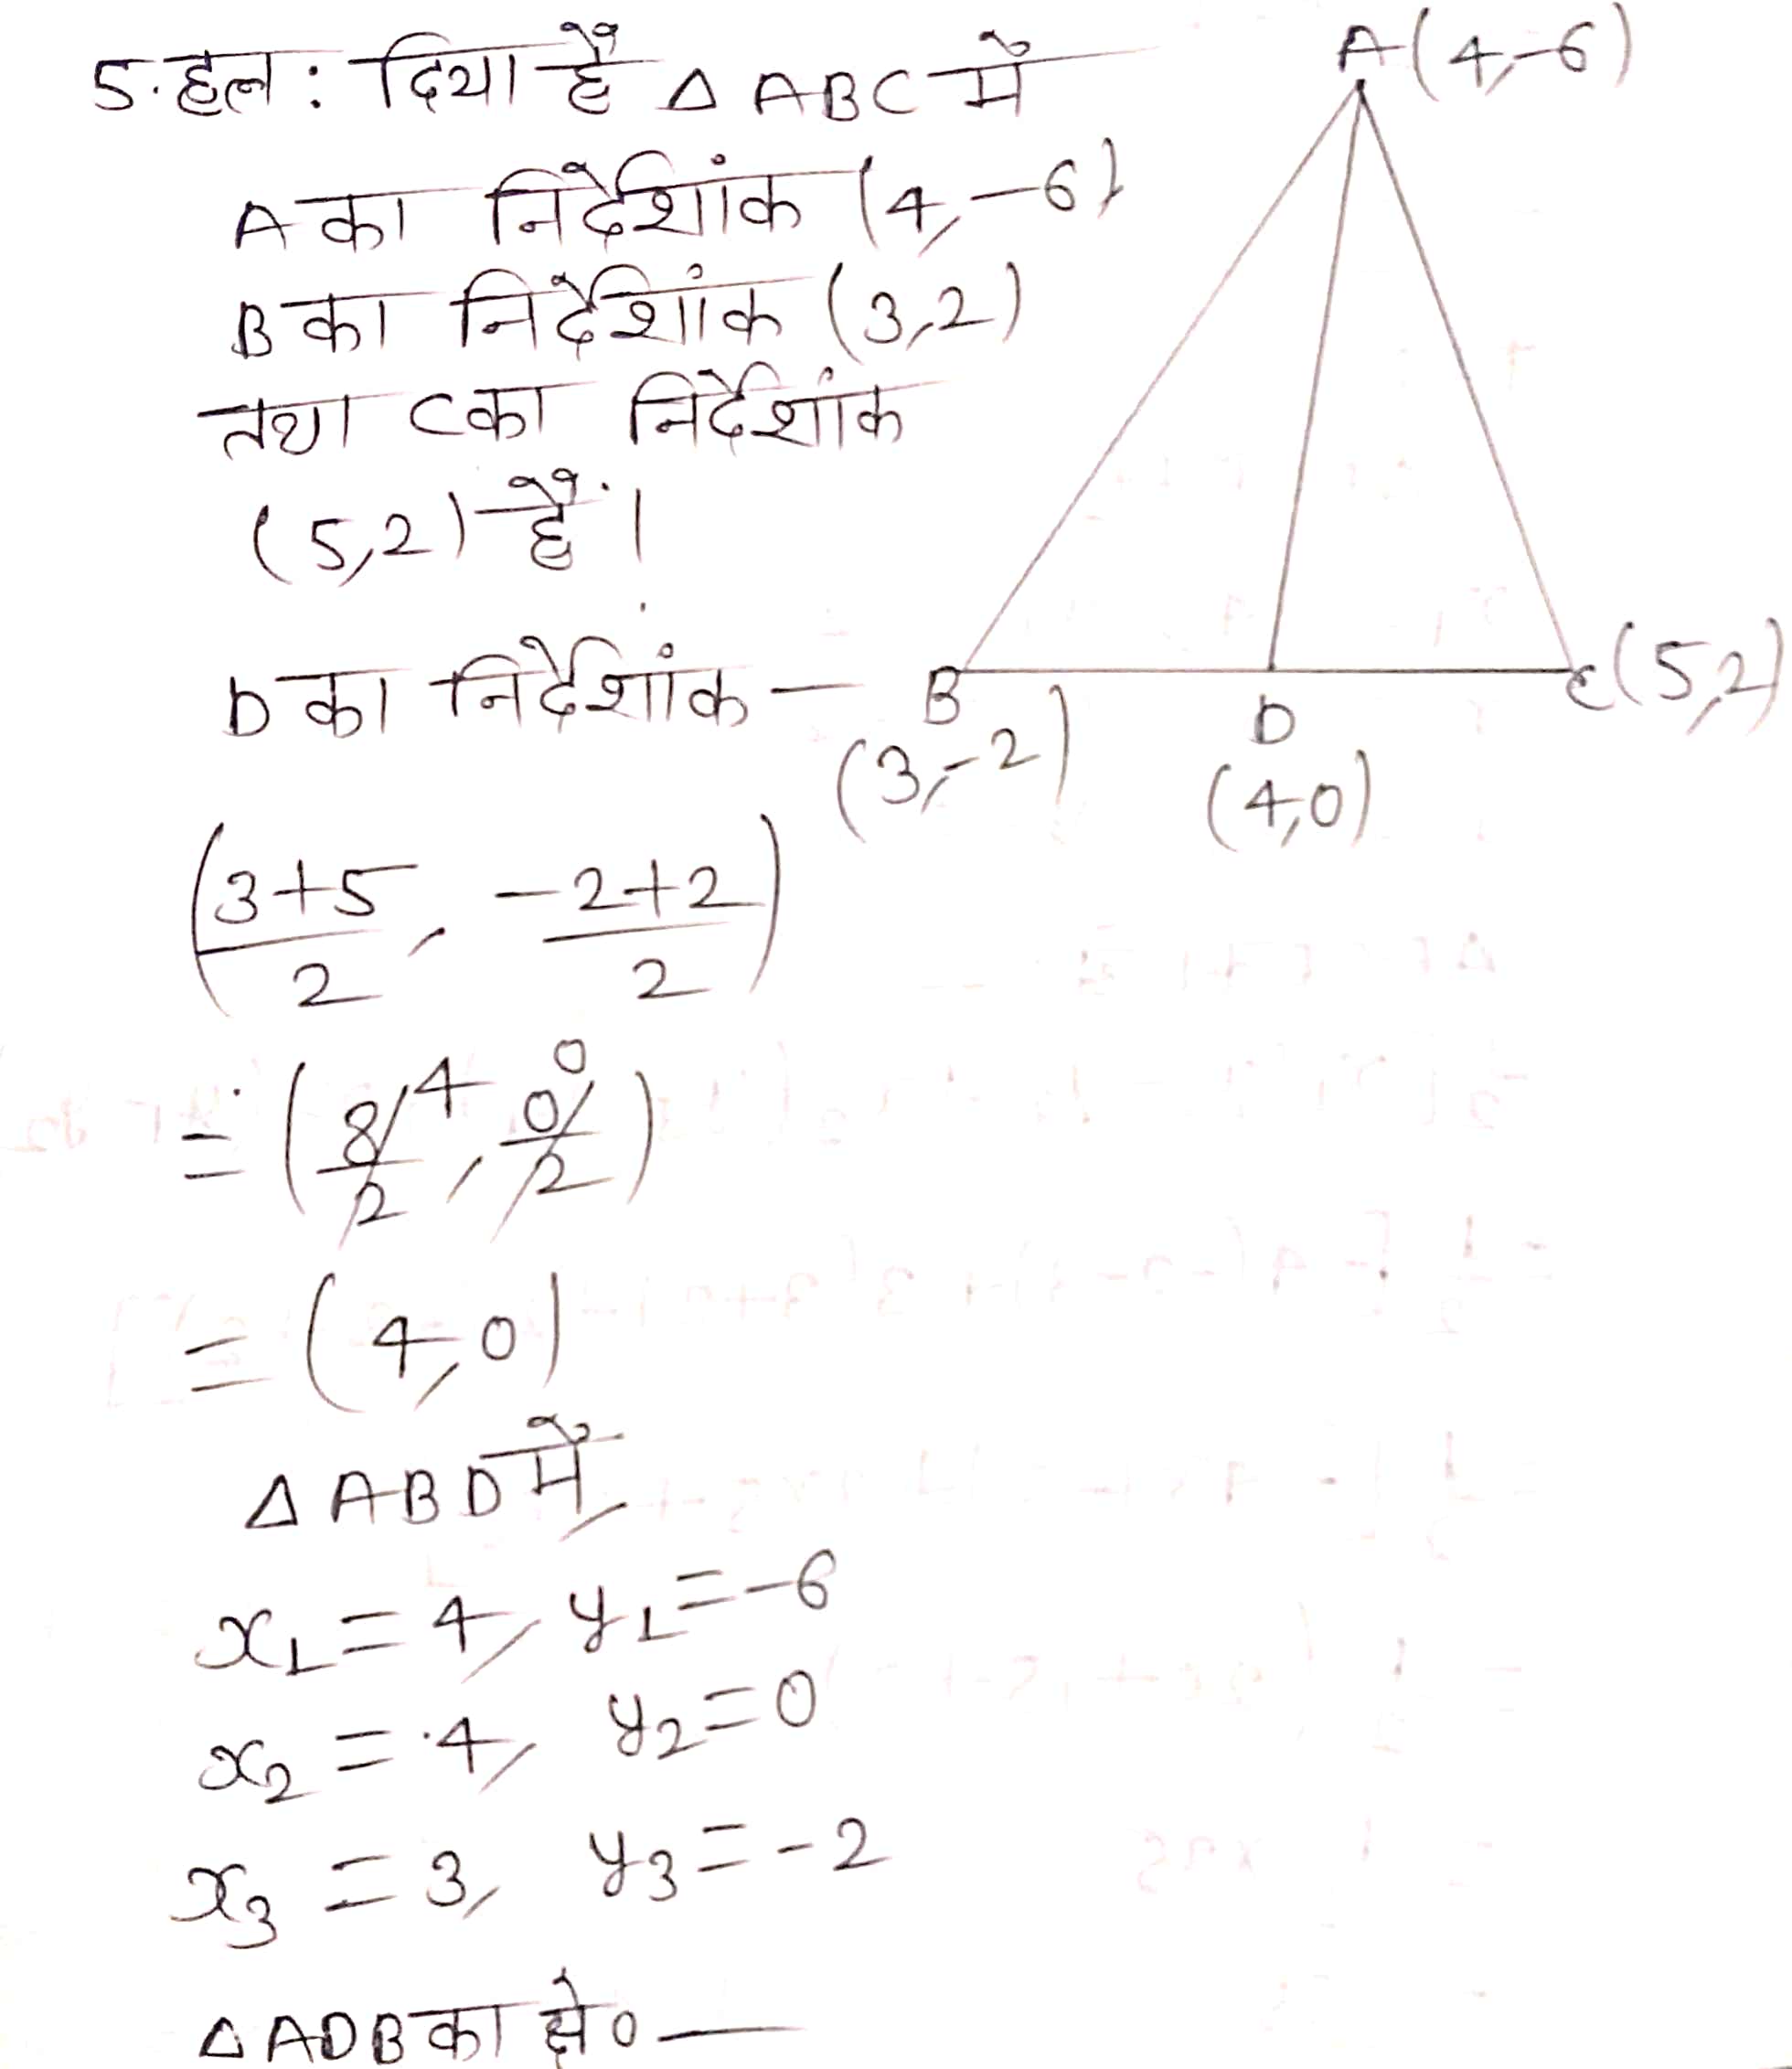 5. हल : दिया हैं Δ ABC में
A(4,-6)
A का निर्देशांक (4,-6)
B का निर्देशांक (3,2)
तथा C का निर्देशांक
(5,2) हैं।
D का निर्देशांक —
B
(3,-2)
D
(4,0)
C(5,2)
(3+5/2, -2+2/2)
= (8/2 4, 0/2 0)
= (4,0)
Δ ABD में,
x₁ = 4, y₁ = -6
x₂ = 4, y₂ = 0
x₃ = 3, y₃ = -2
Δ ADB का क्षे० —